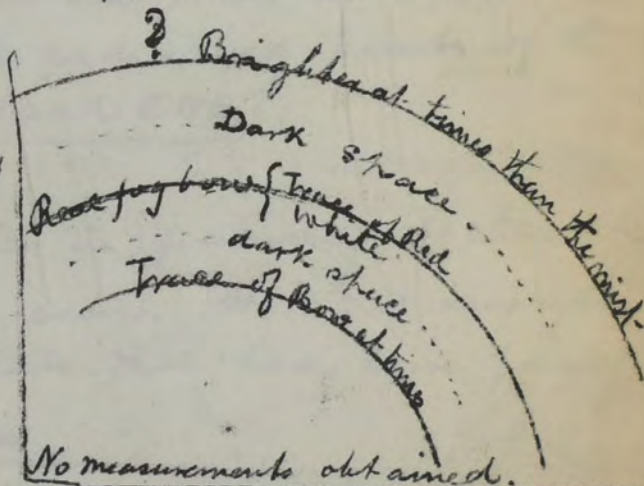 ?
Brighter at times than the mist
Dark space
Real fog bow { Trace of Red
White
dark space
Trace of Bow at times
No measurements obtained.